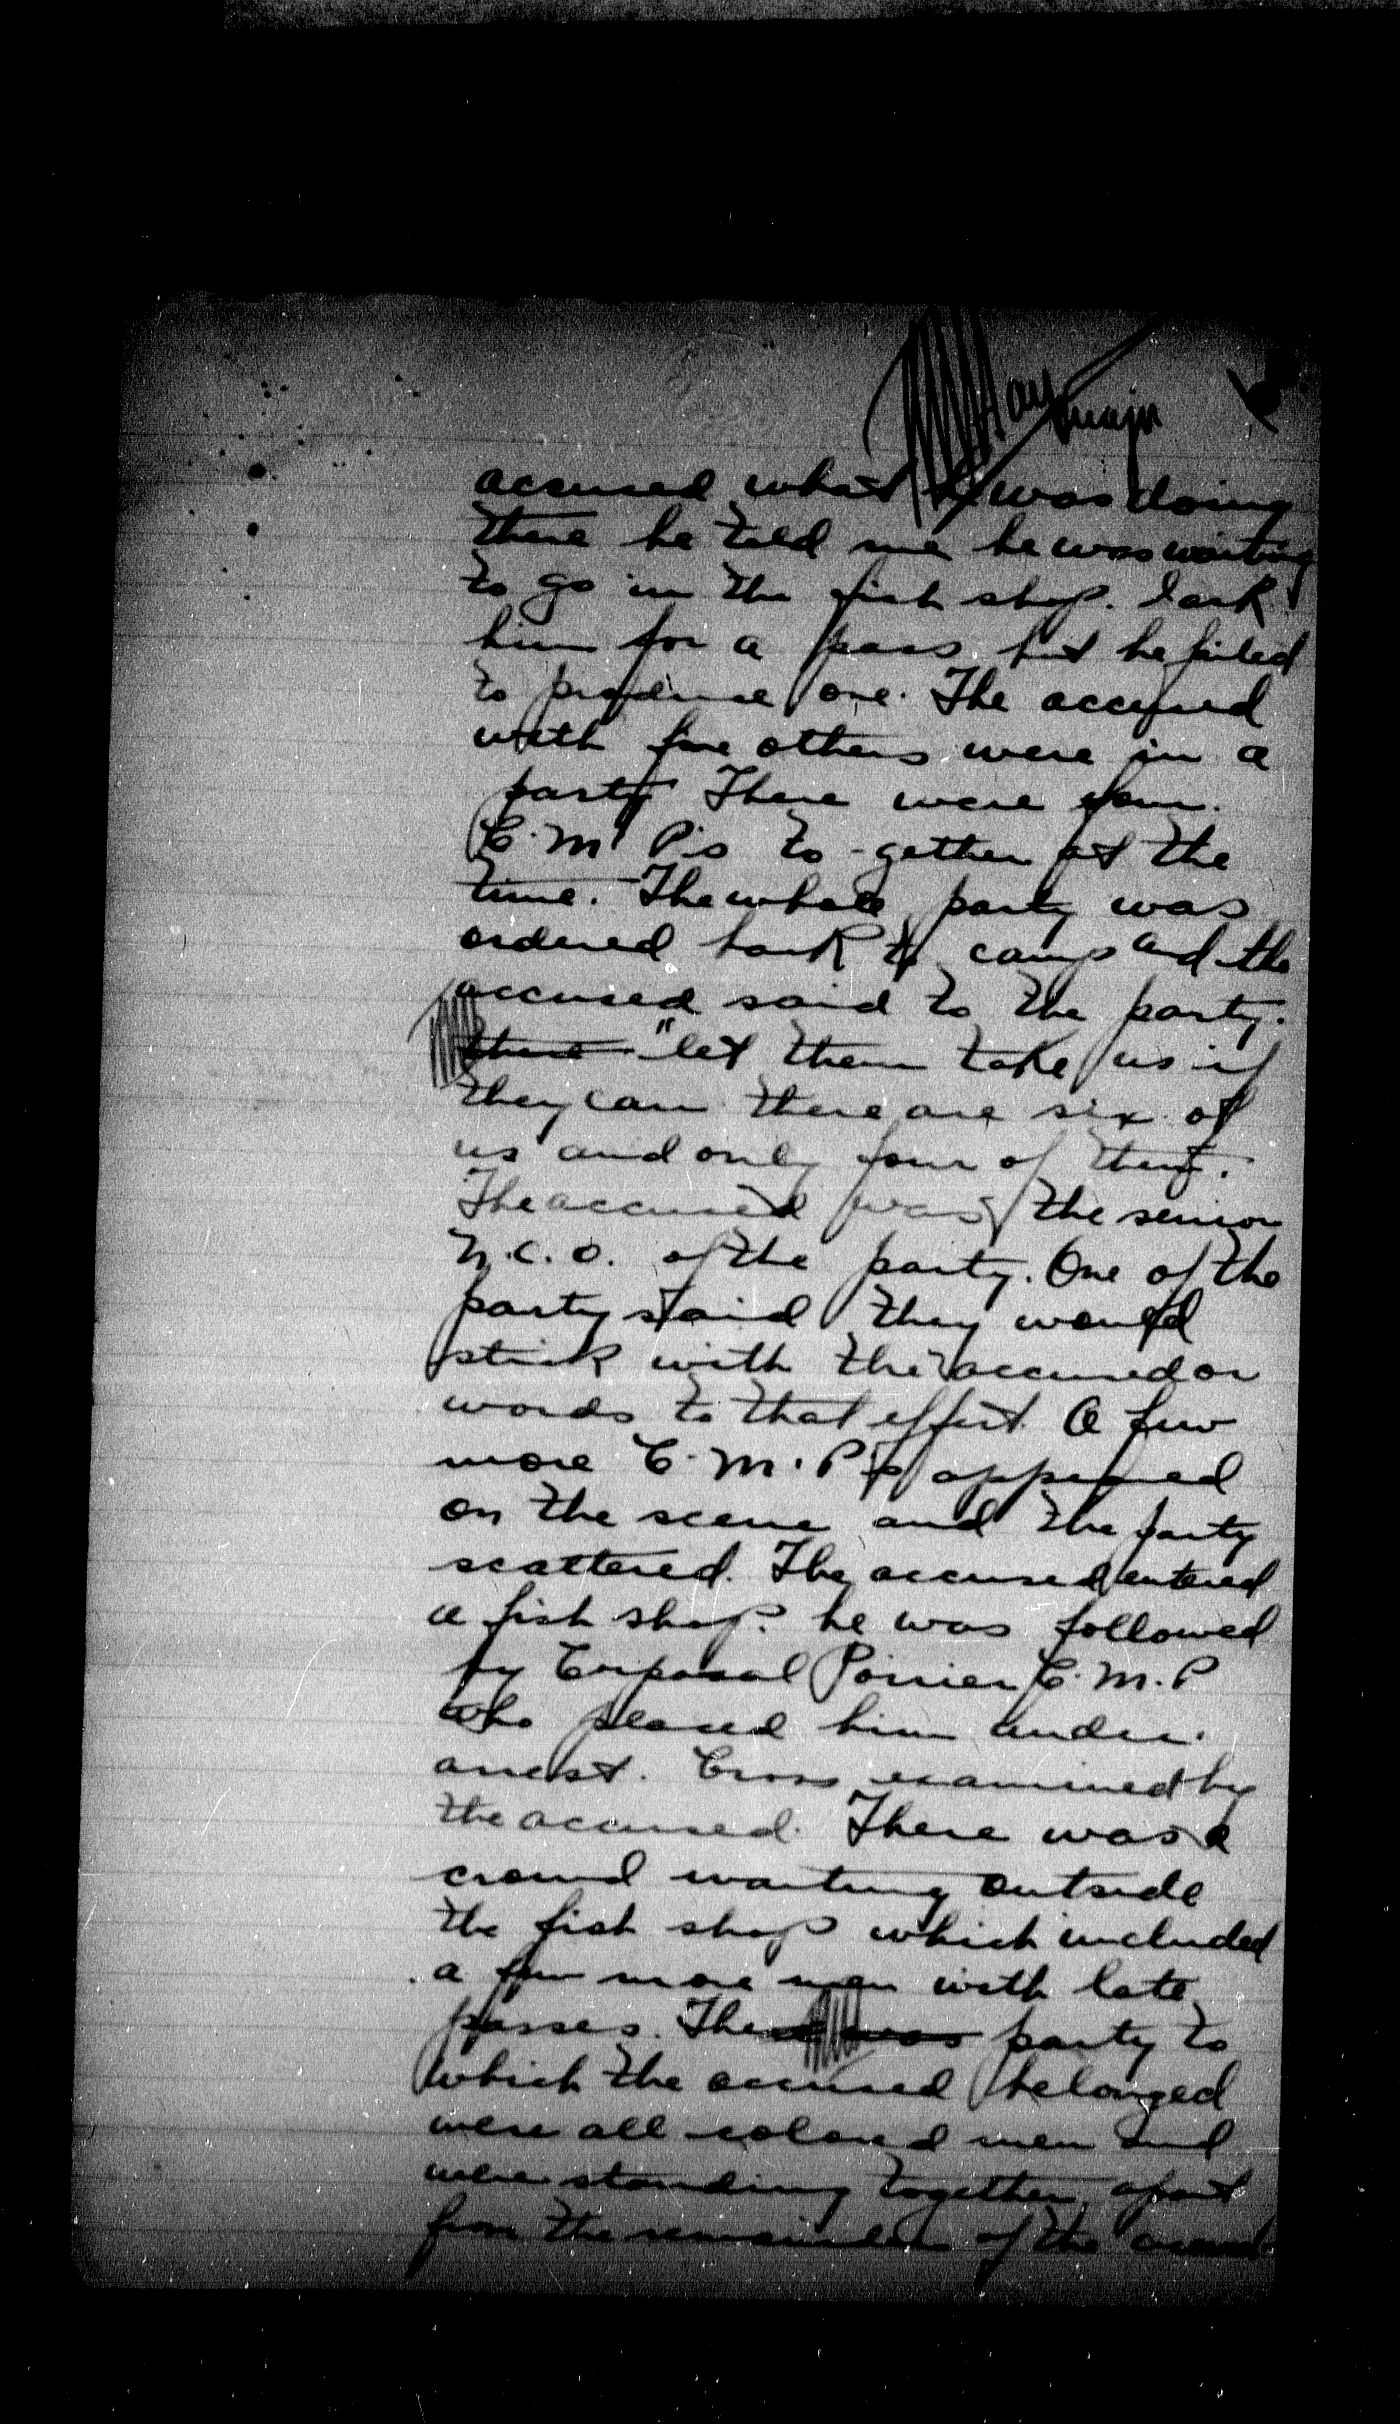 Hay Major
accused what he was doing
there he told me he was waiting
to go in the fish shop. I ask
him for a pass but he failed
to produce one. The accused
with five others were in a
party There were four
C.M.P's to-gether at the
time. The whole party was
ordered back to camp and the
accused said to the party.
there "let them take us if
they can there are six of
us and only four of them".
The accused was the senior
N.C.O. of the party. One of the
party said they would
stick with the accused or
words to that effect. A few
more C.M.P's appeared
on the scene and the party
scattered. The accused entered
a fish shop. he was followed
by Corporal Poirier C.M.P
who placed him under
arrest. Cross examined by
the accused. There was a
crowd waiting outside
the fish shop which included
a few more men with late
passes. There was party to
which the accused belonged
were all colored men and
were standing together apart
from the remainder of the crowd.